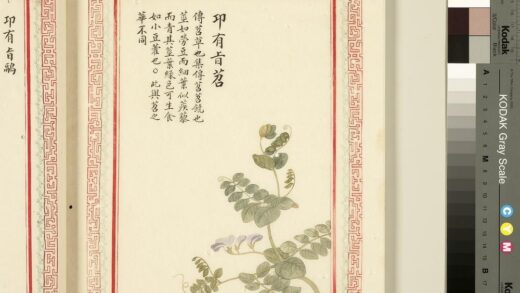 卭有旨苕
傳苕草也集傳苕苕饒也
莖如勞豆而細葉似蒺藜
而青其莖葉綠色可生食
如小豆藿也。此與苕之
華不同
卭有旨鷊
Kodak
KODAK Gray Scale
C Y M
A 1 2 3 4 5 6 M 8 9 10 11 12 13 14 15 B 17
Kodak